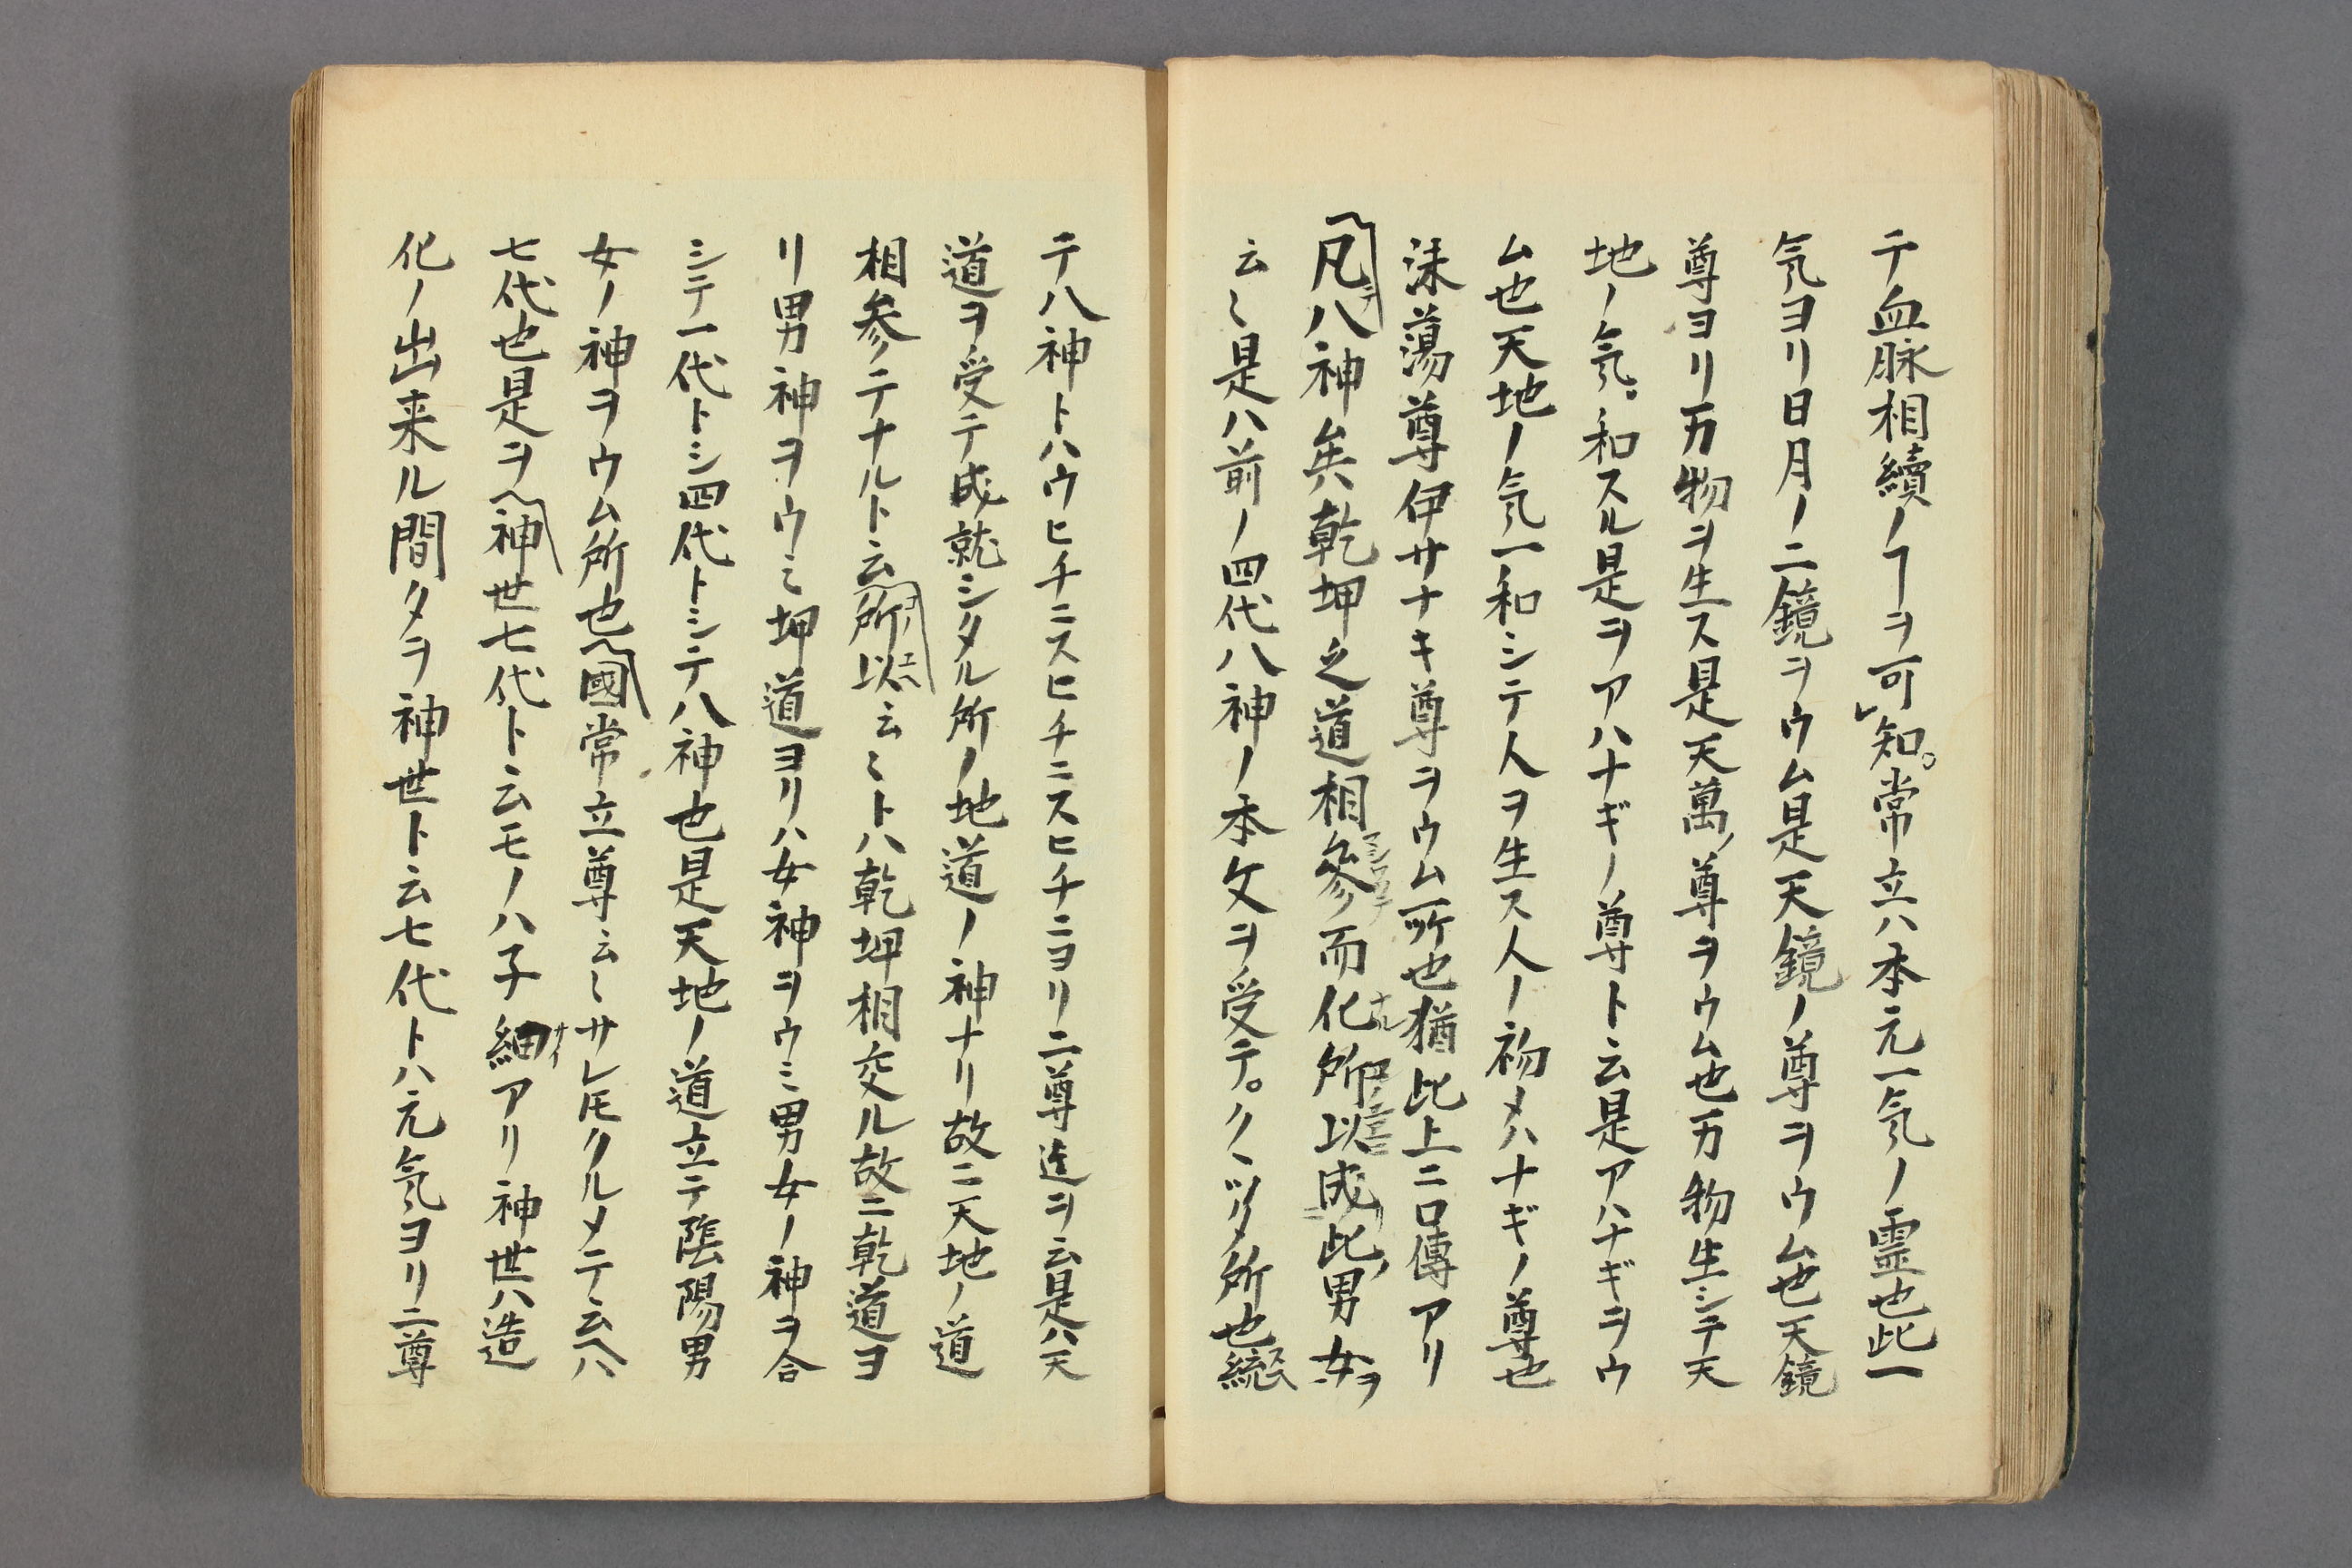 テ血脉相續ノヿヲ可知。常立ハ本元一気ノ霊也此一
気ヨリ日月ノ二鏡ヲウム是天鏡ノ尊ヲウム也天鏡
尊ヨリ万物ヲ生ス是天萬ノ尊ヲウム也万物生シテ天
地ノ気。和スル是ヲアハナギノ尊ト云是アハナギヲウ
ム也天地ノ気一和シテ人ヲ生ス人ノ初メハナギノ尊也
沫蕩尊伊サナキ尊ヲウム所也猶此上ニ口傳アリ
凡テ八神矣乾坤之道相參而化所以成此男女ヲ
云〻是ハ前ノ四代八神ノ本文ヲ受テ。クヽツタ所也総
テ八神トハウヒチニスヒチニスヒチニヨリ二尊迄ヲ云是ハ天
道ヲ受テ成就シタル所ノ地道ノ神ナリ故ニ天地ノ道
相参テナルト云所以云〻トハ乾坤相交ル故ニ乾道ヨ
リ男神ヲウミ坤道ヨリハ女神ヲウミ男女ノ神ヲ合
シテ一代トシ四代トシテ八神也是天地ノ道立テ陰陽男
女ノ神ヲウム所也國常立尊云〻サレ𪜈クルメテ云ヘハ
七代也是ヲ神世七代ト云モノハ子細アリ神世ハ造
化ノ出来ル間タヲ神世ト云七代トハ元気ヨリ二尊